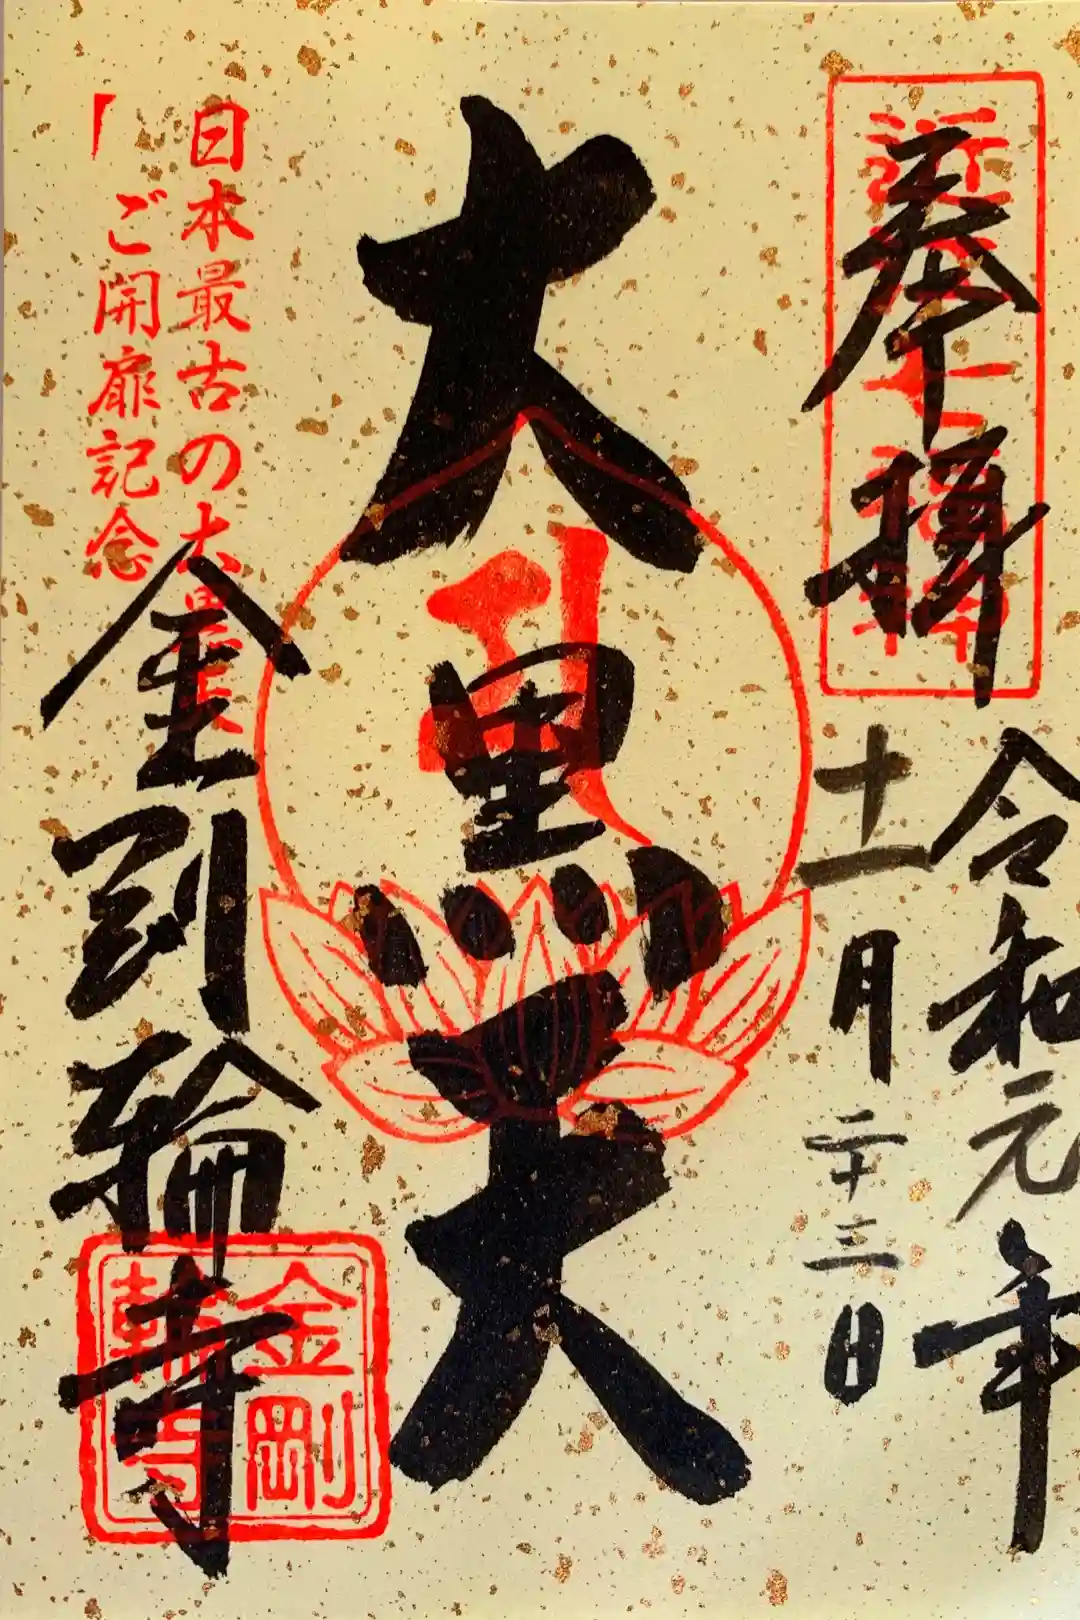 奉拝
近江七福神
令和元年
十一月二十三日
大黒天
日本最古の大黒天
「ご開扉記念
金剛輪寺
金剛
輪寺